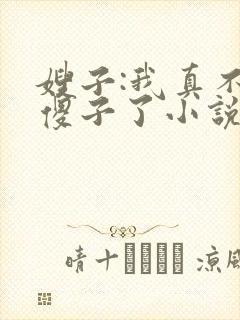 嫂子:我真不
傻子了小説
晴十 涼